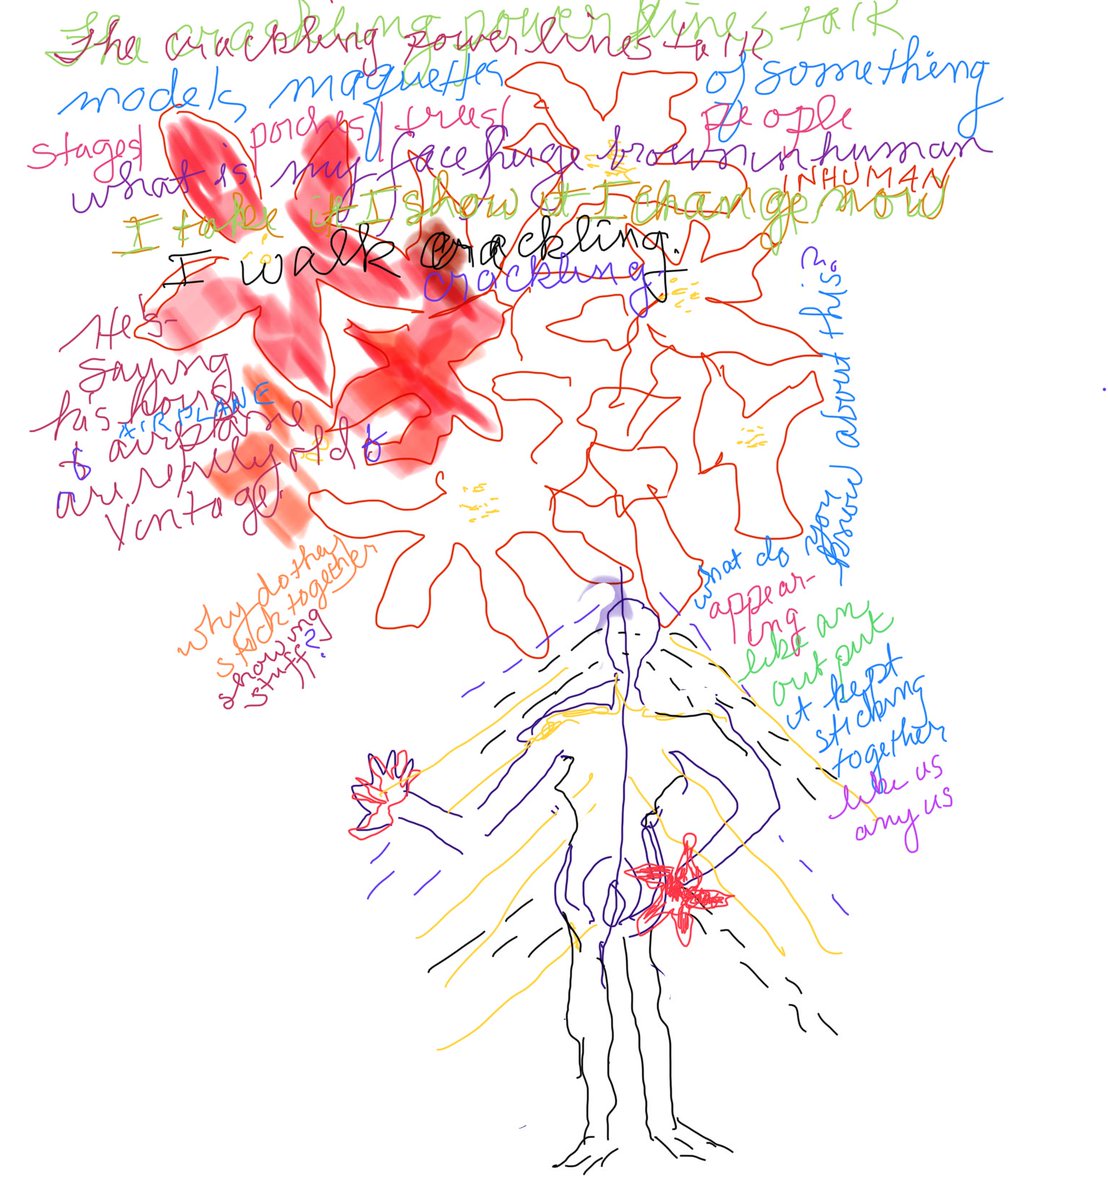 The crackling powerlines talk
The crackling powerlines talk
models maquettes of something
stages porches trees people
what is my face huge brown inhuman
INHUMAN
I take it I show it I change now
I walk crackling.
crackling
He's
saying
his house
AIRPLANE
& airplane
are really old &
Vintage.
why do they
stick together
showing
stuff?
what do you know about this?
appear-
ing
like an
output
it kept
sticking
together
like us
any us